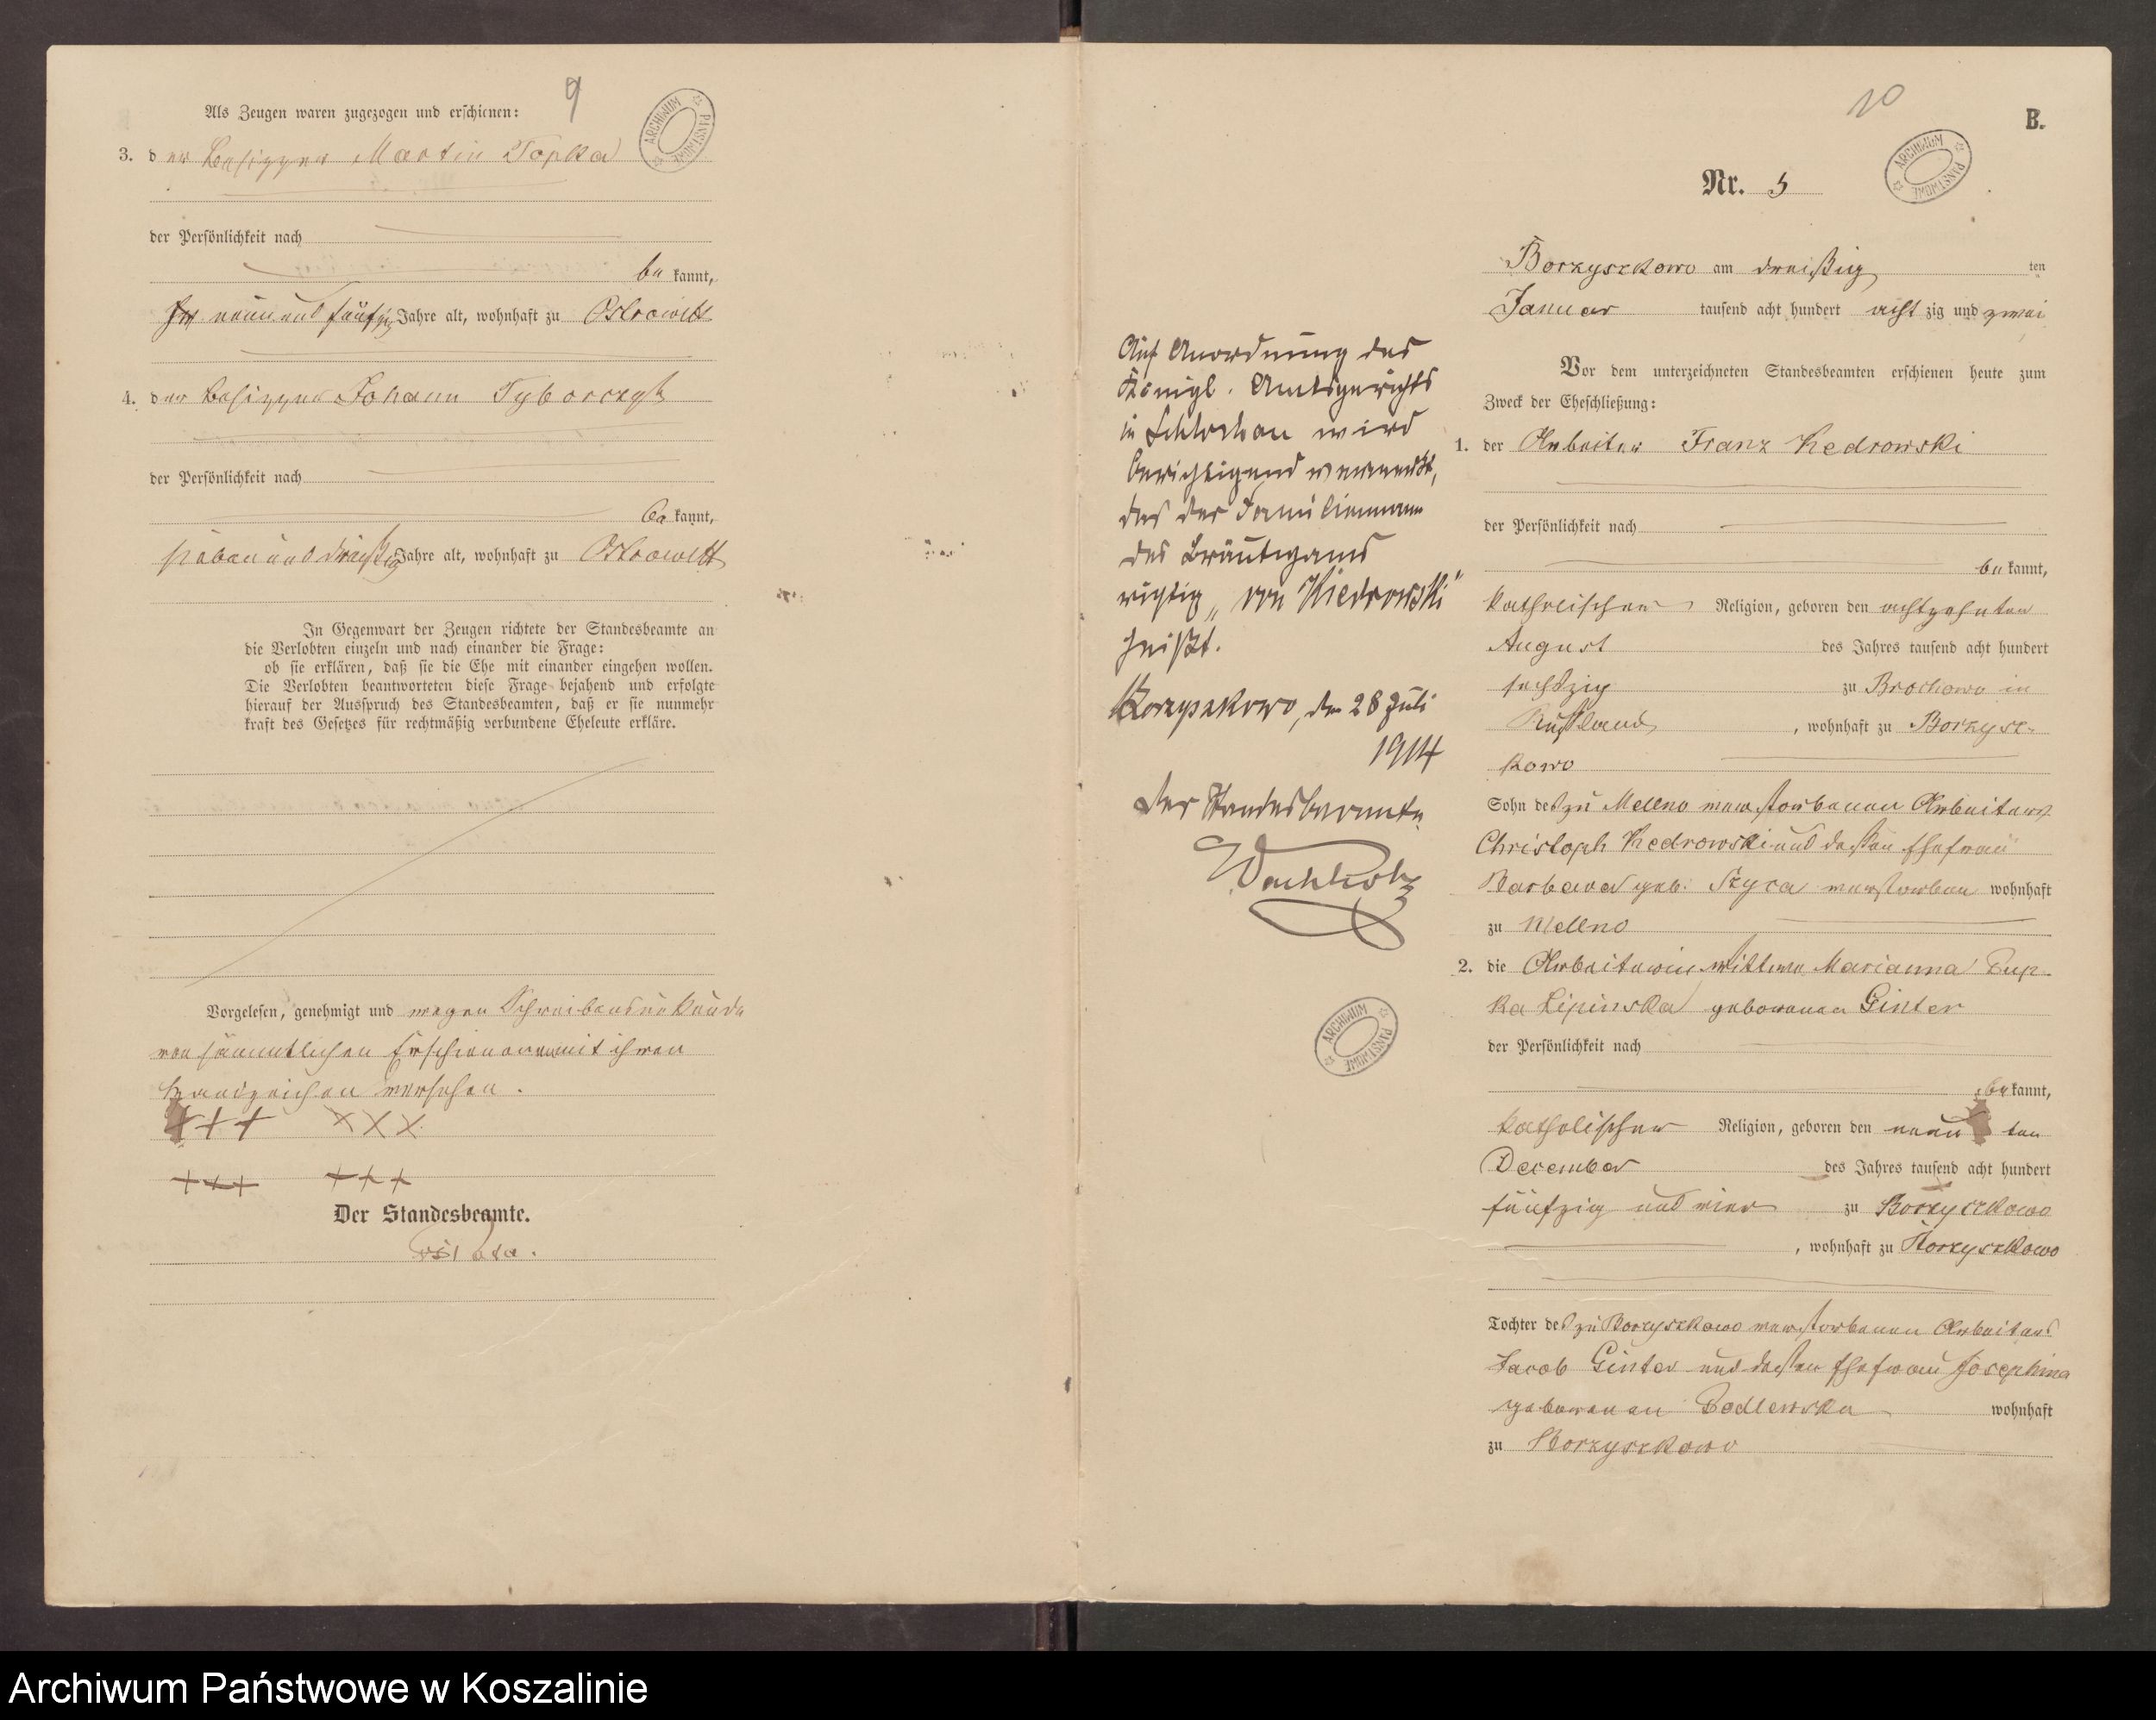 9
Als Zeugen waren zugezogen und erschienen:
3. der Besitzer Martin Topka
der Persönlichkeit nach
bekannt,
neun und fünfzig Jahre alt, wohnhaft zu Ostrowitt
4. der Besitzer Johann Tyborczyk
der Persönlichkeit nach
bekannt,
sieben und dreißig Jahre alt, wohnhaft zu Ostrowitt
In Gegenwart der Zeugen richtete der Standesbeamte an
die Verlobten einzeln und nach einander die Frage:
ob sie erklären, daß sie die Ehe mit einander eingehen wollen.
Die Verlobten beantworteten diese Frage bejahend und erfolgte
hierauf der Ausspruch des Standesbeamten, daß er sie nunmehr
kraft des Gesetzes für rechtmäßig verbundene Eheleute erkläre.
Vorgelesen, genehmigt und wegen Schreibensunkunde
von sämmtlichen Erschienenen mit ihren
Handzeichen versehen.
+++ XXX
+++ +++
Der Standesbeamte.
ARCHIWUM PAŃSTWOWE
10
B.
ARCHIWUM PAŃSTWOWE
Nr. 5
Borzyszkowo am dreißig ten
Januar tausend acht hundert acht zig und zwei
Vor dem unterzeichneten Standesbeamten erschienen heute zum
Zweck der Eheschließung:
1. der Arbeiter Franz Kedrowski
der Persönlichkeit nach
bekannt,
katholischer Religion, geboren den achtzehnten
August des Jahres tausend acht hundert
sechszig zu Brochowo in
Rußland, wohnhaft zu Borzysz-
kowo
Sohn des zu Melleno verstorbenen Arbeiters
Christoph Kedrowski und dessen Ehefrau
Barbara geb. Szyca verstorben wohnhaft
zu Melleno
2. die Arbeiterin Wittwe Marianna Pup-
ka Lipinska geborenen Ginter
der Persönlichkeit nach
bekannt,
katholischer Religion, geboren den neun ten
December des Jahres tausend acht hundert
fünfzig und vier zu Borzyszkowo
, wohnhaft zu Borzyszkowo
Tochter des zu Borzyszkowo verstorbenen Arbeiters
Jacob Ginter und dessen Ehefrau Josephina
geborenen wohnhaft
zu Borzyszkowo
Auf Anordnung des
Königl. Amtsgerichts
in Schlochau wird
berichtigend vermerkt,
das der Familienname
des Bräutigams
richtig „von Kiedrowski"
heißt.
Borzyszkowo, den 28 Juli
1914
Der Standesbeamte
Wachholz
ARCHIWUM PAŃSTWOWE
Archiwum Państwowe w Koszalinie